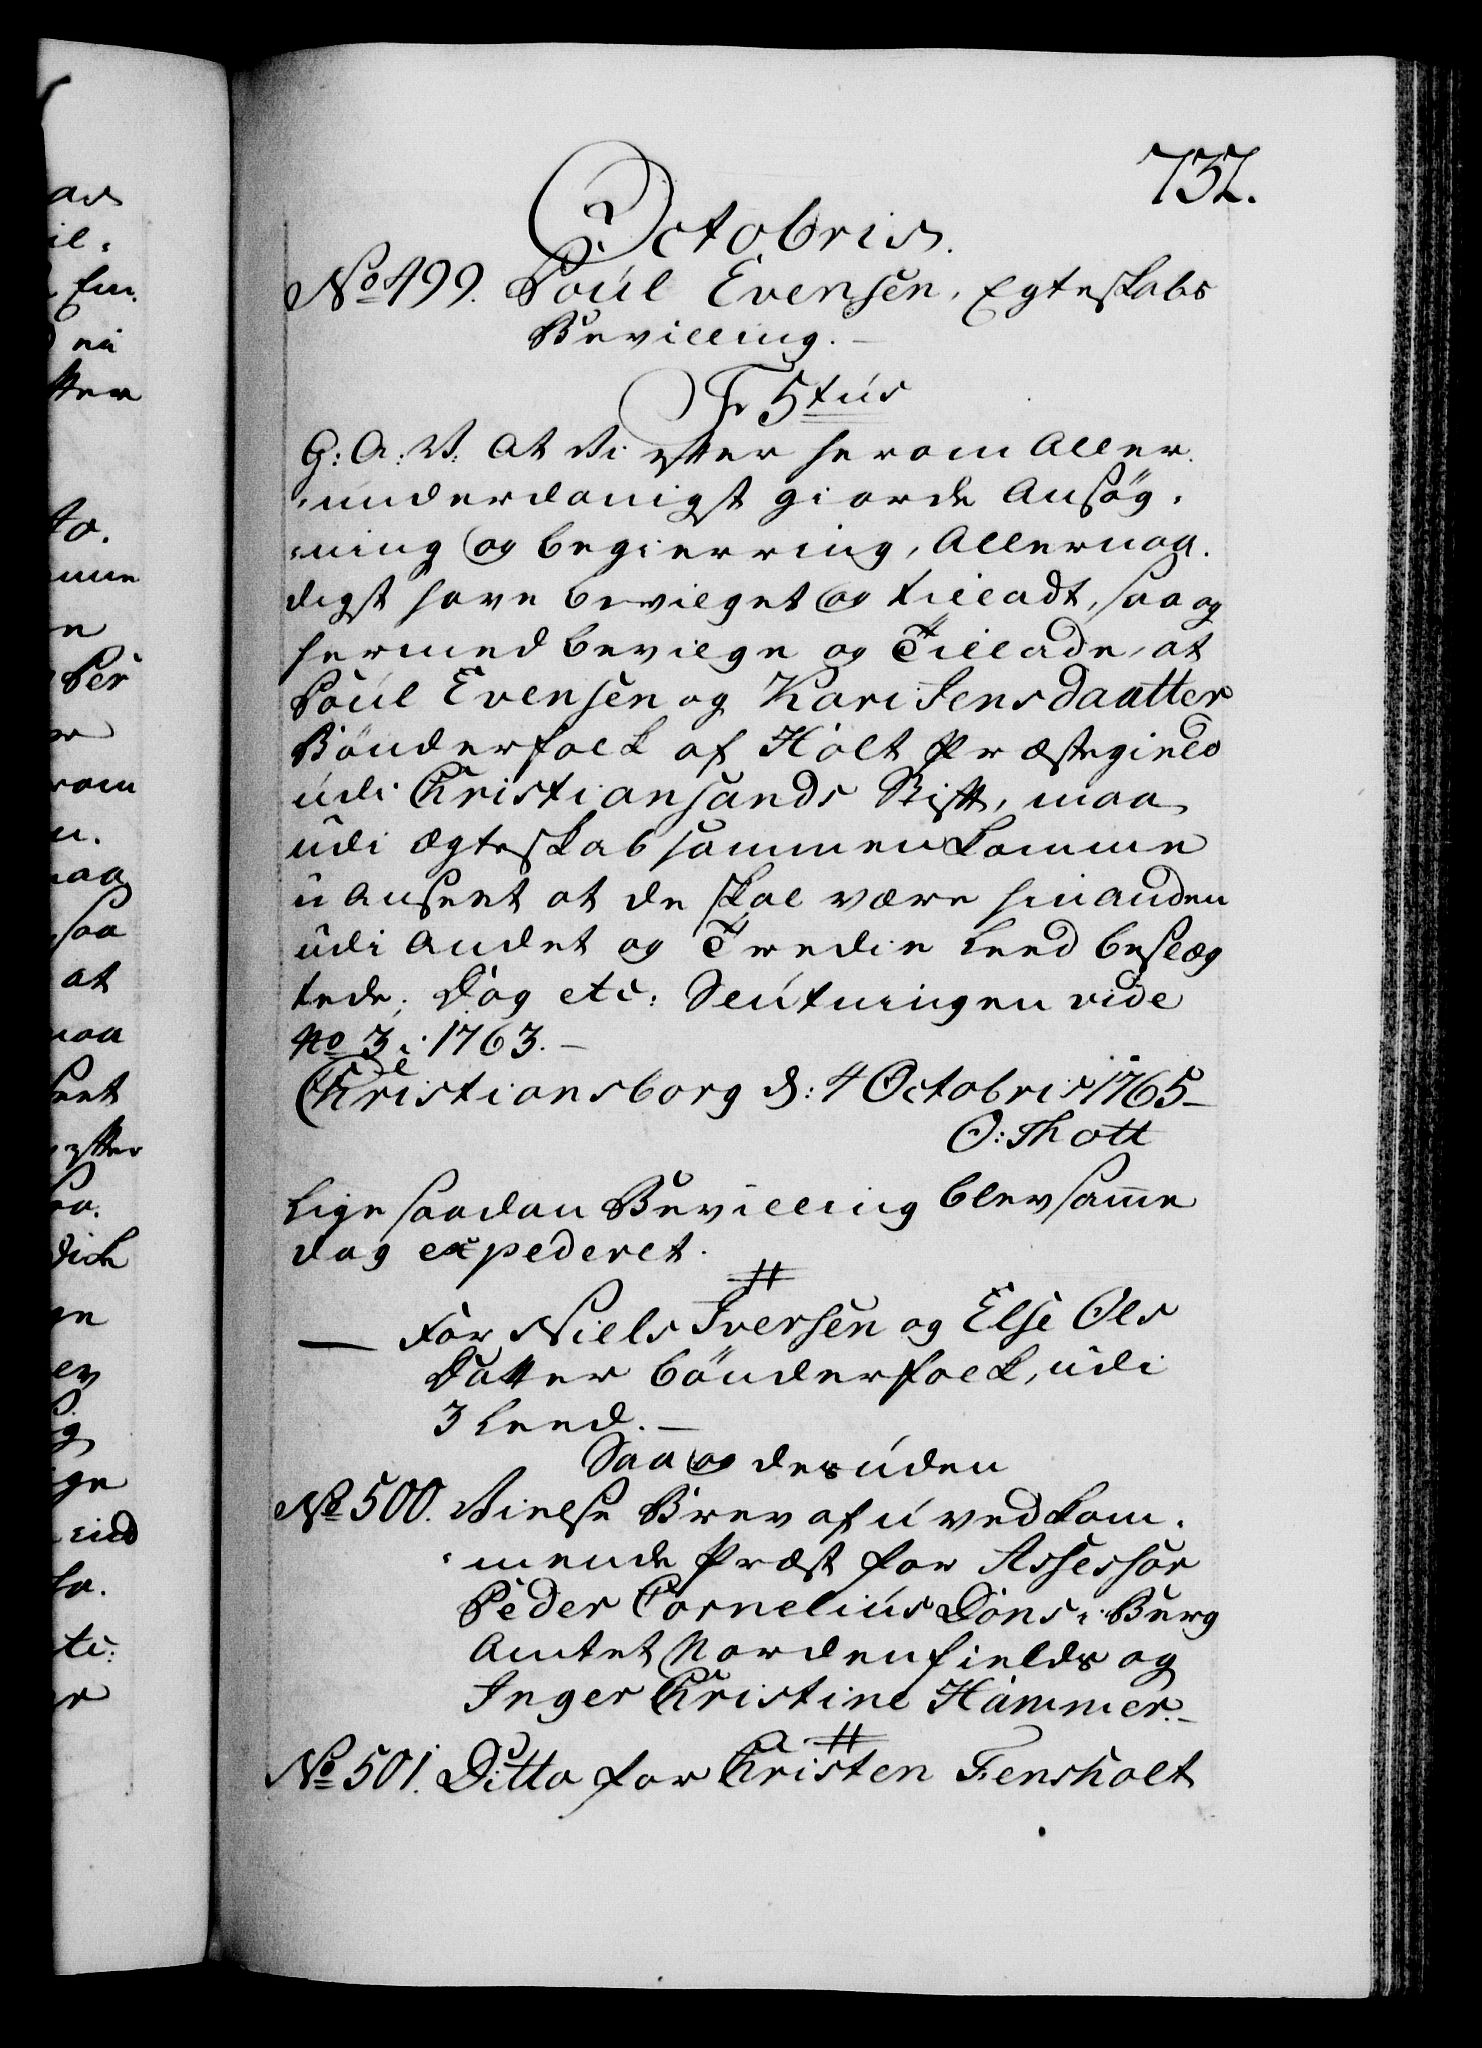 737.
Octobris.
No 499. Poul Evensen, Egteskabs
Bevilling.
Fr 5tus
G: A: V: At Vi efter herom Aller
underdanigst giorde Ansøg
ning og begierring, Allernaa
digst have bevilget og tilladt, saa og
hermed bevilge og Tillade, at
Poul Evensen og Kari Jensdaatter
Bønderfolk af Holt Præstegield
udi Christiansands Stift, maa
udi Ægteskab sammenkomme
uanseet at de skal være hinanden
udi Andet og Tredie Leed beslæg
tede; Dog etc: Slutningen vide
No 3 i 1763.
Christiansborg d: 4 Octobris 1765
O: Thott
Lige saadan Bevilling blev samme
dag expederet.
For Niels Iversen og Else Ols
Datter bønderfolk, udi
3 Leed.
Saa og desuden
No 500. Vielse Brev af uvedkom
mende Præst for Assessor
Peder Cornelius Dons i Berg
Amtet Nordenfields og
Inger Christine Hammer.
No 501. Ditto for Christen Fensholt